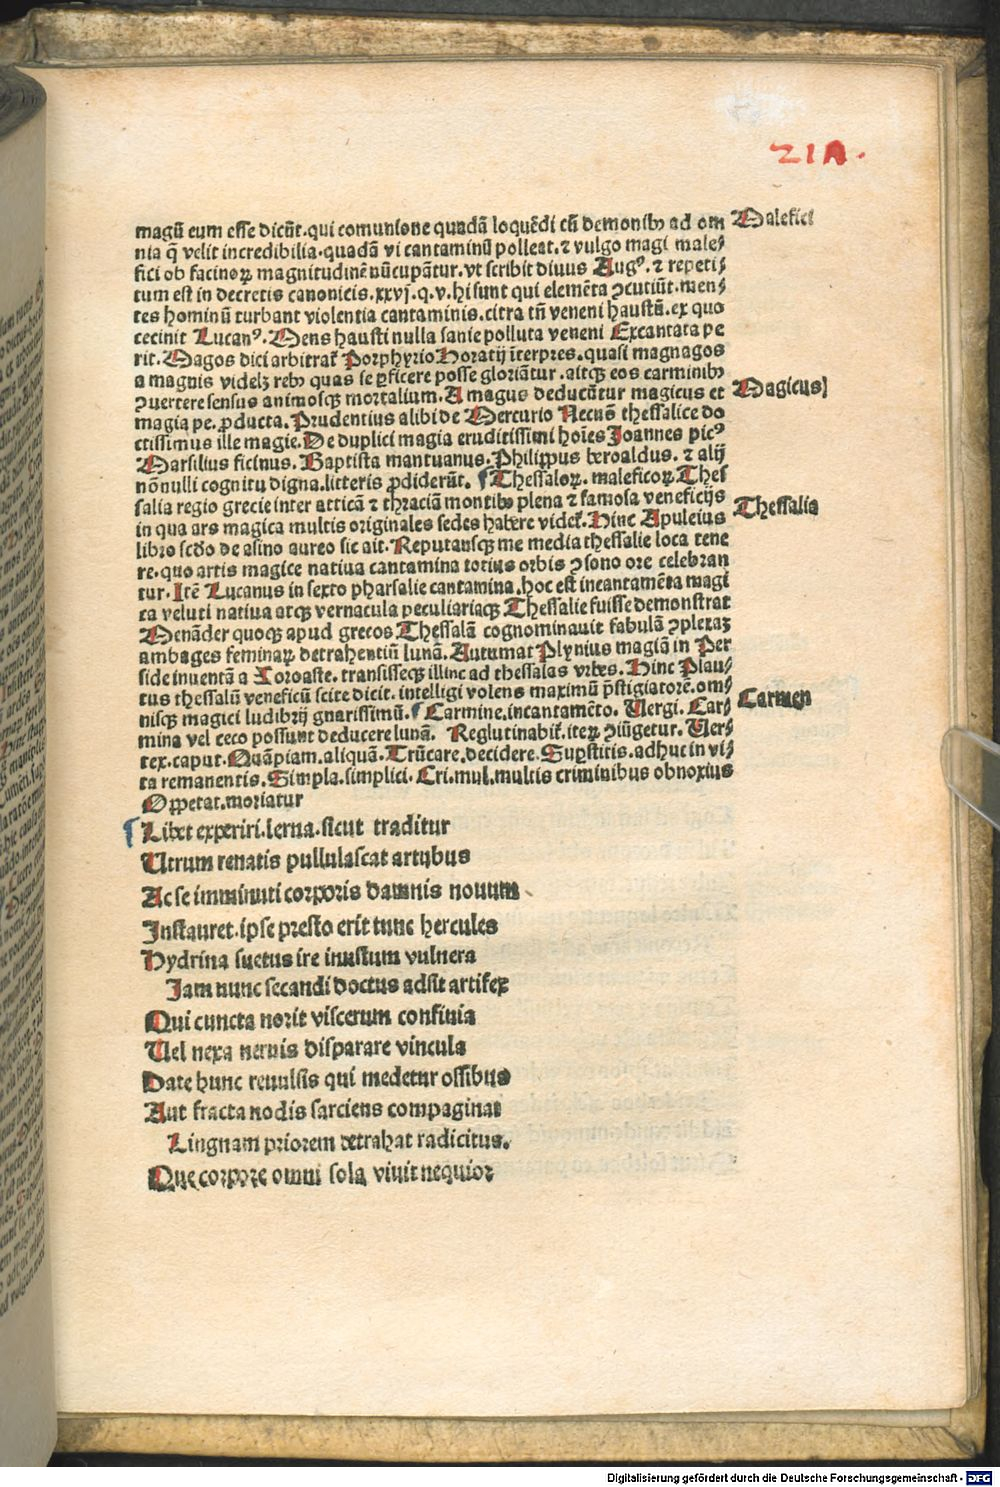 21A.
magū eum esse dicūt. qui comunione quadā loquēdi cū demonibꝰ ad om
Malefici
nia q̄ velit incredibilia. quadā vi cantaminū polleat. ⁊ vulgo magi male⸗
fici ob facinoꝝ magnitudinē nūcupātur. vt scribit diuus Augꝰ. ⁊ repeti⸗
tum est in decretis canonicis. xxvj. q. v. hi sunt qui elemēta ꝯcutiūt. men⸗
tes hominū turbant violentia cantaminis. citra tn̄ veneni haustū. ex quo
cecinit Lucanꝰ. Mens hausti nulla sanie polluta veneni Excantata pe
rit. Magos dici arbitrat̄ Porphyrio Horatij īterpres. quasi magnagos
a magnis videlꝫ rebꝰ quas se ꝑficere posse gloriātur. aitqꝫ eos carminibꝰ
ꝯuertere sensus animosqꝫ mortalium. A magus deducūtur magicus et
Magicus
magia pe. ꝓducta. Prudentius alibi de Mercurio Necnō thessalice do
ctissimus ille magie. De duplici magia eruditissimi hoīes Joannes picꝰ
Marsilius ficinus. Baptista mantuanus. Philippus beroaldus. ⁊ alij
nōnulli cognitu digna. litteris ꝓdiderūt. ¶ Thessaloꝝ. maleficoꝝ. Thes
salia regio grecie inter atticā ⁊ thraciā montibꝰ plena ⁊ famosa veneficijs
Thessalia
in qua ars magica multis originales sedes habere videt̄. Hinc Apuleius
libro scdo de asino aureo sic ait. Reputansqꝫ me media thessalie loca tene
re. quo artis magice natiua cantamina totius orbis ꝯsono ore celebran
tur. Itē Lucanus in sexto pharsalie cantamina. hoc est incantamēta magi
ca veluti natiua atqꝫ vernacula peculiariaqꝫ Thessalie fuisse demonstrat
Menāder quoqꝫ apud grecos Thessalā cognominauit fabulā ꝯplexaꝫ
ambages feminaꝝ detrahentiū lunā. Autumat Plynius magiā in Per
side inuentā a Zoroaste. transisseqꝫ illinc ad thessalas vrbes. Hinc Plau⸗
tus thessalū veneficū scite dicit. intelligi volens maximū p̄stigiatorē. om⸗
nisqꝫ magici ludibrij gnarissimū. ¶ Carmine. incantamēto. Uergi. Car⸗
Carmen
mina vel celo possunt deducere lunā. Reglutinabit̄. iteꝝ ꝯiūgetur. Uer⸗
tex. caput. Quāpiam. aliquā. Trūcare. decidere. Suꝑstitis. adhuc in vi⸗
ta remanentis. Simpla. simplici. Cri. mul. multis criminibus obnoxius
Oppetat. moriatur
¶ Libet experiri. lerna. sicut traditur
Utrum renatis pullulascat artubus
Ac se imminuti corporis damnis nouum
Instauret. ipse presto erit tunc hercules
Hydrina suetus ire inustum vulnera
Jam nunc secandi doctus adsit artifex
Qui cuncta norit viscerum confinia
Uel nexa neruis disparare vincula
Date hunc reuulsis qui medetur ossibus
Aut fracta nodis sarciens compaginat
Linguam priorem detrahat radicitus.
Que corpore omni sola viuit nequior
Digitalisierung gefördert durch die Deutsche Forschungsgemeinschaft - DFG